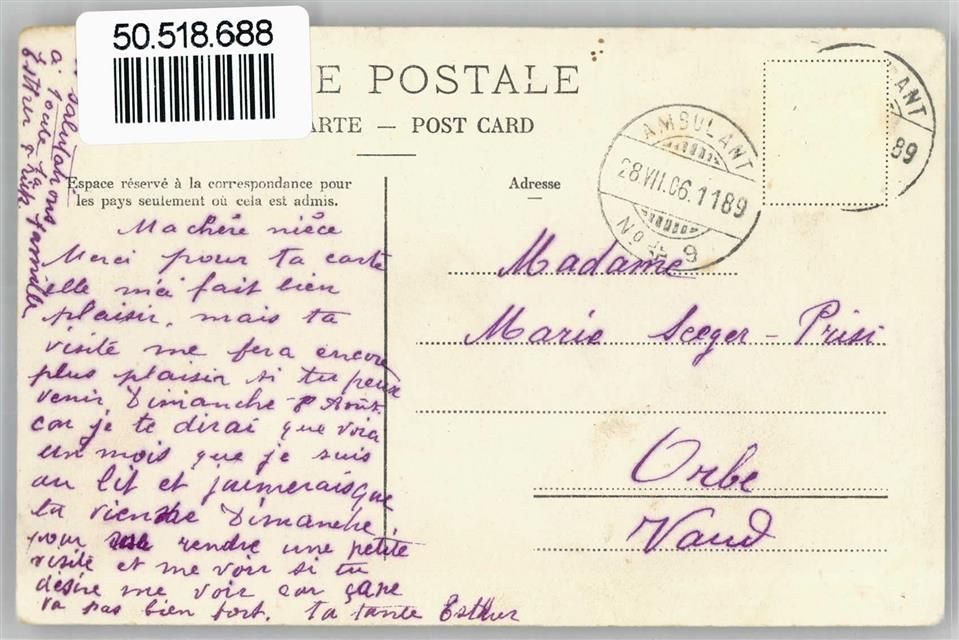 50.518.688
E POSTALE
ARTE — POST CARD
Espace réservé à la correspondance pour
les pays seulement où cela est admis.
Adresse
AMBULANT
28 VII.06.1189
No 9
ANT
89
salutations
a toute ta
famille
Esther
Ma chère nièce
Merci pour ta carte
elle m'a fait bien
plaisir, mais ta
visite me fera encore
plus plaisir si tu peux
venir Dimanche Août
car je te dirai que voia
un mois que je suis
au lit et jaimerais que
ta vienne Dimanche
pour rendre une petite
visite et me voir si tu
désire me voir car çane
va pas bien fort. ta tante Esther
Madame
Marie Seeger - Prisi
Orbe
Vaud